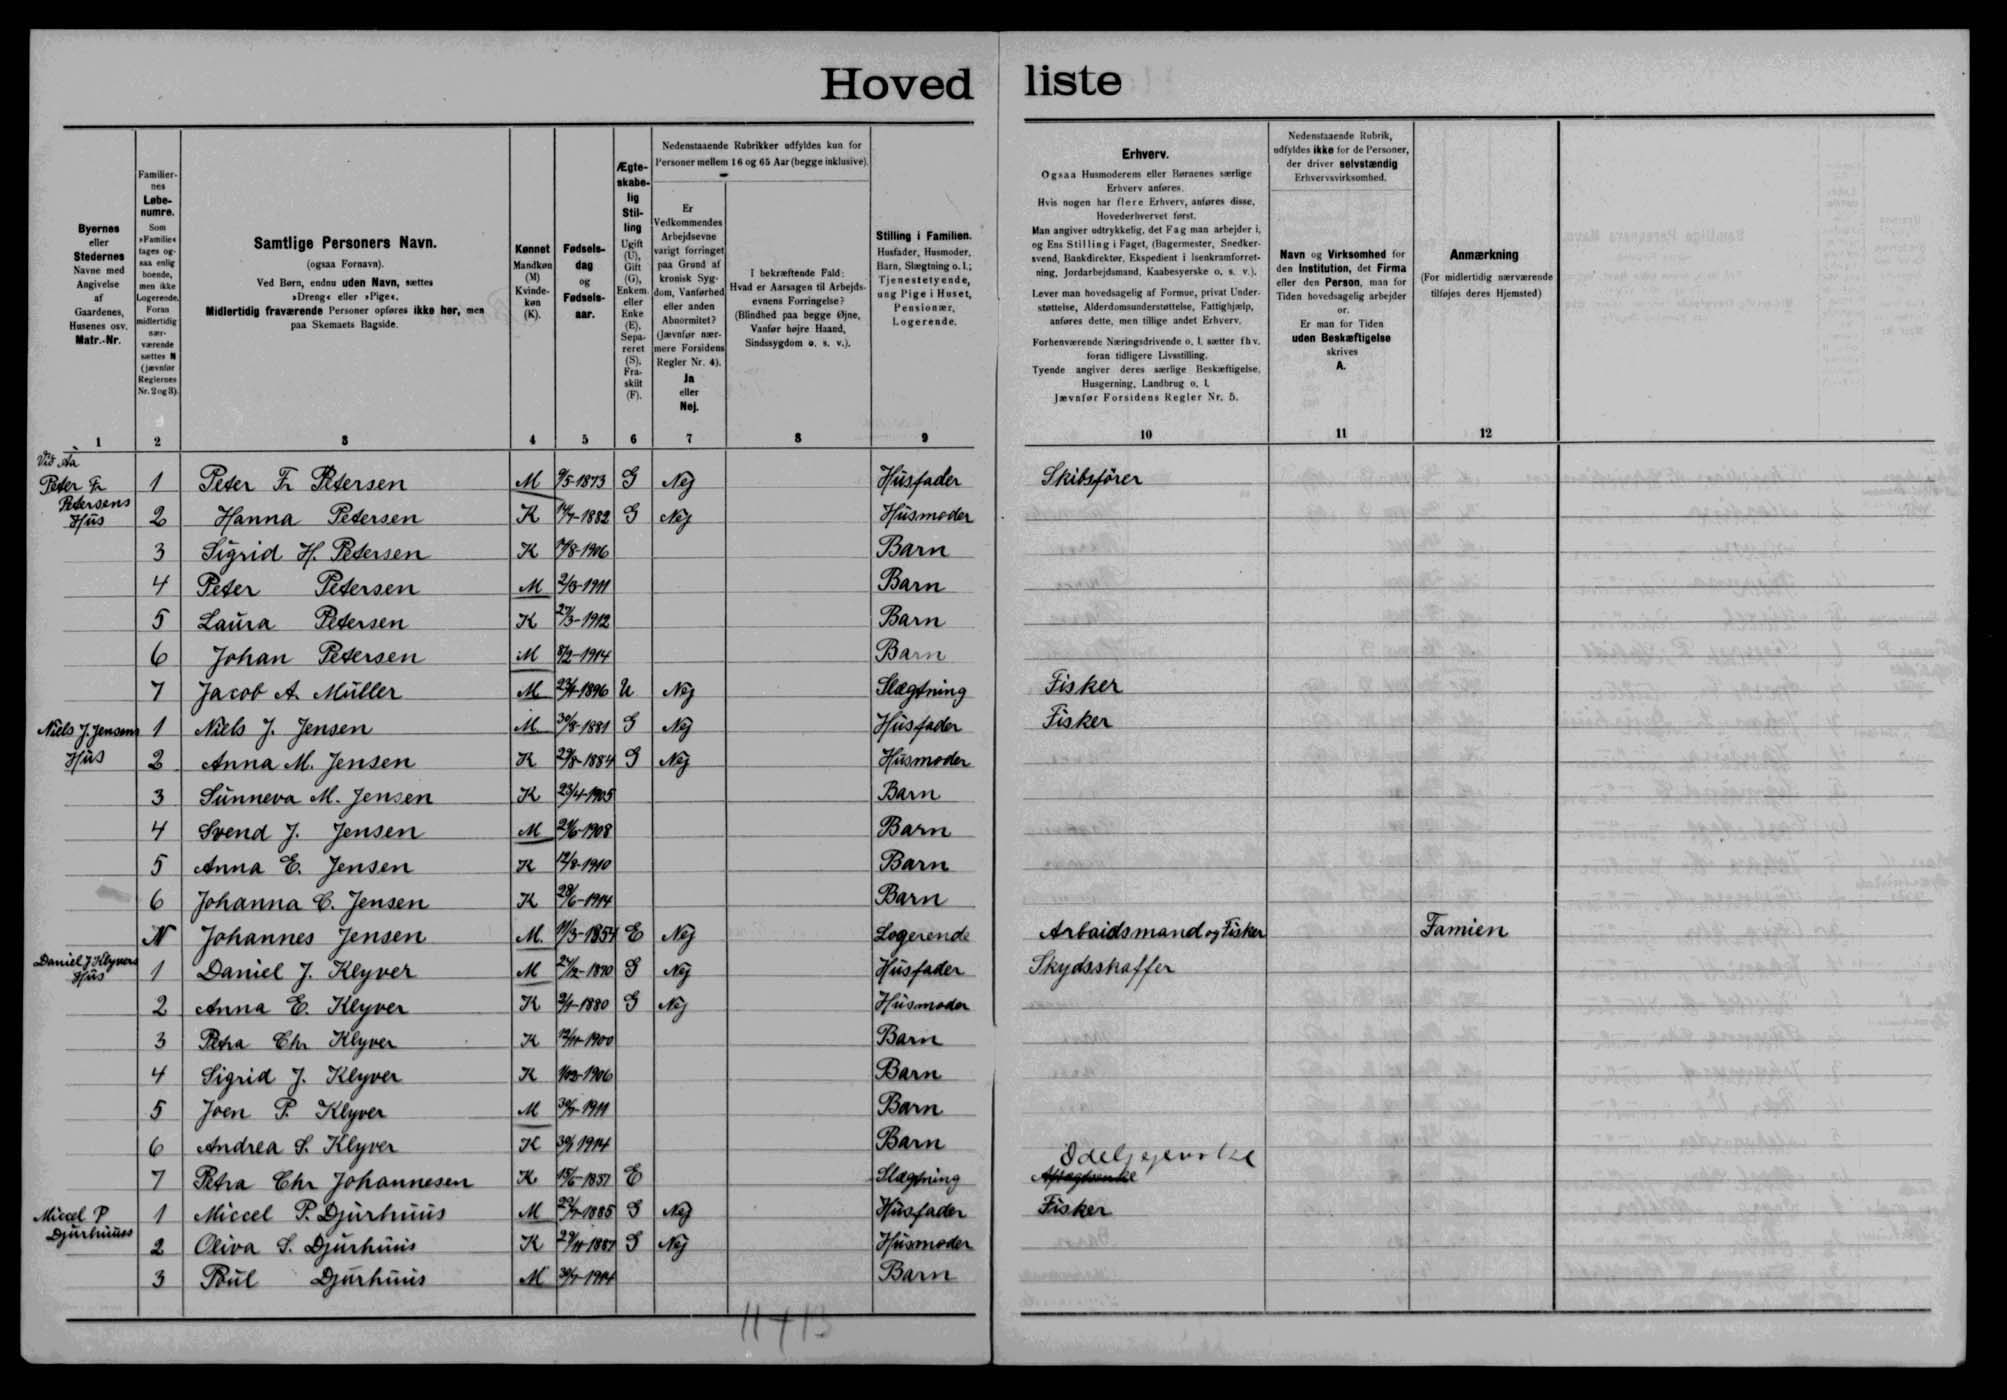 Hoved liste
Byernes
eller
Stedernes
Navne med
Angivelse
af
Gaardenes,
Husenes osv.
Matr.-Nr.
Familier-
nes
Løbe-
numre.
Som
»Familie«
tages og-
saa enlig
boende,
men ikke
Logerende.
Foran
midlertidig
nær-
værende
sættes N
(jævnfør
Reglernes
Nr. 2 og 3).
Samtlige Personers Navn.
(ogsaa Fornavn).
Ved Børn, endnu uden Navn, sættes
»Dreng« eller »Pige«.
Midlertidig fraværende Personer opføres ikke her, men
paa Skemaets Bagside.
Kønnet
Mandkøn
(M)
Kvinde-
køn
(K).
Fødsels-
dag
og
Fødsels-
aar.
Ægte-
skabe-
lig
Stil-
ling
Ugift
(U),
Gift
(G),
Enkem.
eller
Enke
(E),
Sepa-
reret
(S),
Fra-
skilt
(F).
Nedenstaaende Rubrikker udfyldes kun for
Personer mellem 16 og 65 Aar (begge inklusive).
Er
Vedkommendes
Arbejdsevne
varigt forringet
paa Grund af
kronisk Syg-
dom, Vanførhed
eller anden
Abnormitet?
(Jævnfør nær-
mere Forsidens
Regler Nr. 4).
Ja
eller
Nej.
I bekræftende Fald:
Hvad er Aarsagen til Arbejds-
evnens Forringelse?
(Blindhed paa begge Øjne,
Vanfør højre Haand,
Sindssygdom o. s. v.).
Stilling i Familien.
Husfader, Husmoder,
Barn, Slægtning o. l.;
Tjenestetyende,
ung Pige i Huset,
Pensionær,
Logerende.
Erhverv.
Ogsaa Husmoderens eller Børnenes særlige
Erhverv anføres.
Hvis nogen har flere Erhverv, anføres disse,
Hovederhvervet først.
Man angiver udtrykkelig, det Fag man arbejder i,
og Ens Stilling i Faget, (Bagermester, Snedker-
svend, Bankdirektør, Ekspedient i Isenkramforret-
ning, Jordarbejdsmand, Kaabesyerske o. s. v.).
Lever man hovedsagelig af Formue, privat Under-
støttelse, Alderdomsunderstøttelse, Fattighjælp,
anføres dette, men tillige andet Erhverv.
Forhenværende Næringsdrivende o. l. sætter fhv.
foran tidligere Livsstilling.
Tyende angiver deres særlige Beskæftigelse,
Husgerning, Landbrug o. l.
Jævnfør Forsidens Regler Nr. 5.
Nedenstaaende Rubrik,
udfyldes ikke for de Personer,
der driver selvstændig
Erhvervsvirksomhed.
Navn og Virksomhed for
den Institution, det Firma
eller den Person, man for
Tiden hovedsagelig arbejder
for.
Er man for Tiden
uden Beskæftigelse
skrives
A.
Anmærkning
(For midlertidig nærværende
tilføjes deres Hjemsted)
1 2 3 4 5 6 7 8 9 10 11 12
Vid Aa
Peter Fr 1 Peter Fr Petersen M 9/5-1873 G Nej Husfader Skibsfører
Petersens
Hus 2 Hanna Petersen K 1882 G Nej Husmoder
3 Sigrid H. Petersen K 1906 Barn
4 Peter Petersen M 1911 Barn
5 Laura Petersen K 1912 Barn
6 Johan Petersen M 8/2-1914 Barn
7 Jacob A. Müller M 1896 U Nej Slægtning Fisker
Niels J. Jensens 1 Niels J. Jensen M 30/8-1881 G Nej Husfader Fisker
Hus 2 Anna M. Jensen K 29/8-1884 G Nej Husmoder
3 Sunneva M. Jensen K 23/4-1905 Barn
4 Svend J. Jensen M 1908 Barn
5 Anna E. Jensen K 12/8-1910 Barn
6 Johanna C. Jensen K 28/6-1914 Barn
N Johannes Jensen M. 11/3-1854 E Nej Logerende Arbaidsmand og Fisker Famien
Daniel J Klyvers 1 Daniel J. Klyver M 1870 G Nej Husfader Skydsskaffer
Hus
2 Anna E. Klyver K 1880 G Nej Husmoder
3 Petra Chr Klyver K 1900 Barn
4 Sigrid J. Klyver K 1906 Barn
5 Joen P. Klyver M 1911 Barn
6 Andrea S. Klyver K 1914 Barn
7 Petra Chr Johannesen K 15/6-1837 E Slægtning
Miccel P 1 Miccel P. Djurhuus M 1885 G Nej Husfader Fisker
Djurhuuss
2 Oliva S. Djurhuus K 1887 G Nej Husmoder
3 Poul Djurhuus M 1914 Barn
11+13